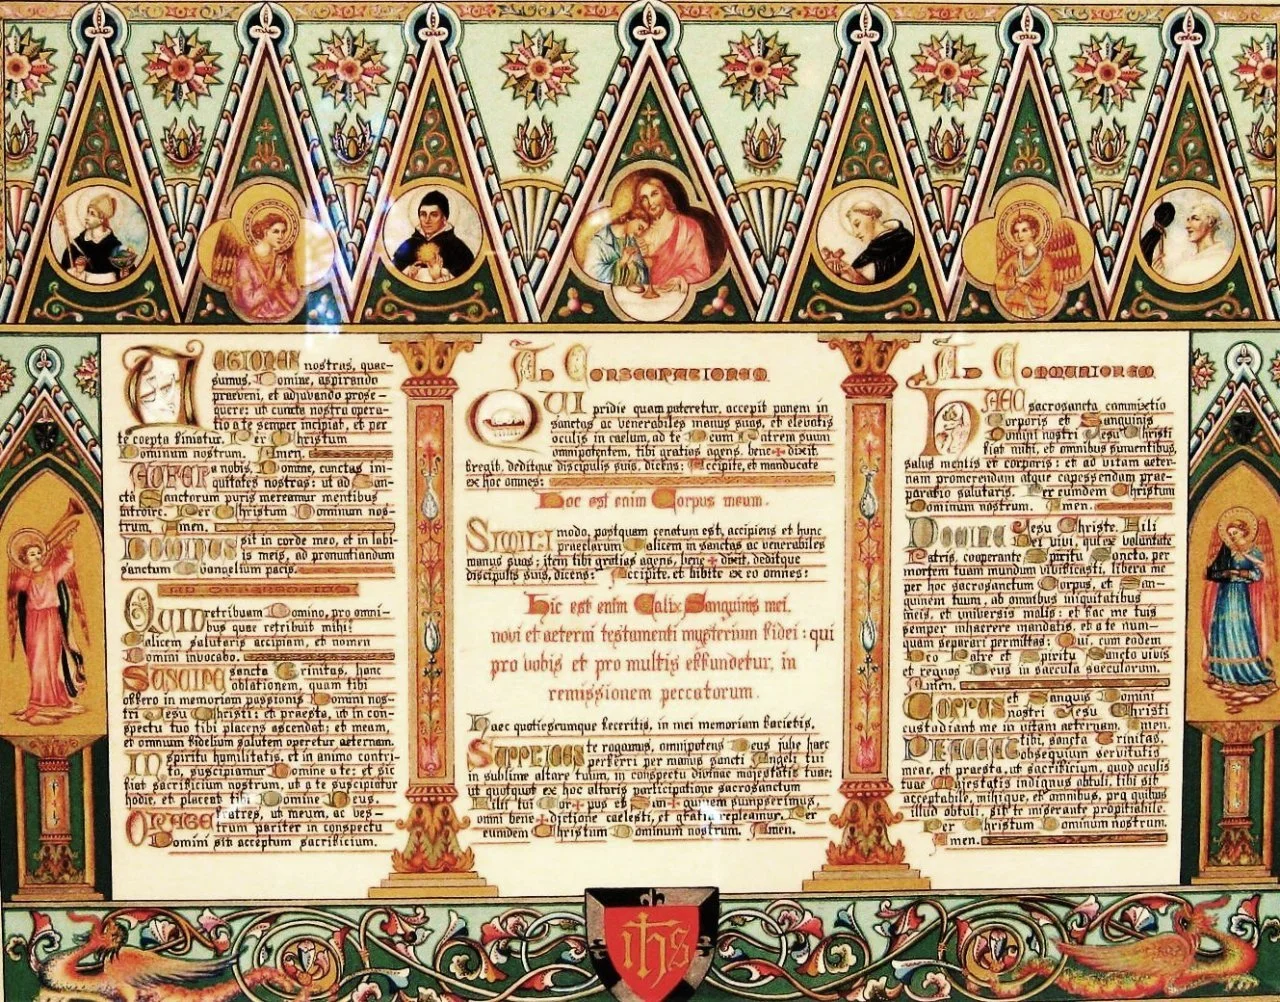 ACTIONES nostras, quae-
sumus, Domine, aspirando
praeveni, et adjuvando prose-
quere: ut cuncta nostra opera-
tio a te semper incipiat, et per
te coepta finiatur. Per Christum
Dominum nostrum. Amen.
AUFER a nobis, Domine, cunctas ini-
quitates nostras: ut ad San-
cta Sanctorum puris mereamur mentibus
introire. Per Christum Dominum nos-
trum. Amen.
DOMINUS sit in corde meo, et in labi-
is meis, ad pronuntiandum
sanctum Evangelium pacis.
QUID retribuam Domino, pro omni-
bus quae retribuit mihi?
Calicem salutaris accipiam, et nomen
Domini invocabo.
SUSCIPE sancta Trinitas, hanc
oblationem, quam tibi
offero in memoriam passionis Domini nos-
tri Jesu Christi: et praesta, ut in con-
spectu tuo tibi placens ascendat: et meam,
et omnium fidelium salutem operetur aeternam.
IN spiritu humilitatis, et in animo contri-
to, suscipiamur Domine a te: et sic
fiat sacrificium nostrum, ut a te suscipiatur
hodie, et placeat tibi Domine Deus.
ORATE fratres, ut meum, ac ves-
trum pariter in conspectu
Domini sit acceptum sacrificium.
Ad Consecrationem
QUI pridie quam pateretur, accepit panem in
sanctas ac venerabiles manus suas, et elevatis
oculis in caelum, ad te Deum Patrem suum
omnipotentem, tibi gratias agens, bene + dixit,
fregit, deditque discipulis suis, dicens: Accipite, et manducate
ex hoc omnes:
Hoc est enim Corpus meum.
SIMILI modo, postquam cenatum est, accipiens et hunc
praeclarum Calicem in sanctas ac venerabiles
manus suas: item tibi gratias agens, bene + dixit, deditque
discipulis suis, dicens: Accipite, et bibite ex eo omnes:
Hic est enim Calix Sanguinis mei,
novi et aeterni testamenti mysterium fidei: qui
pro vobis et pro multis effundetur, in
remissionem peccatorum.
Haec quotiescumque feceritis, in mei memoriam facietis.
SUPPLICES te rogamus, omnipotens Deus jube haec
perferri per manus sancti Angeli tui
in sublime altare tuum, in conspectu divinae majestatis tuae:
ut quotquot ex hoc altaris participatione sacrosanctum
Filii tui Cor+pus et San+guinem sumpserimus,
omni bene+dictione caelesti, et gratia repleamur. Per
eumdem Christum Dominum nostrum. Amen.
Ad Communionem
HAEC sacrosancta commixtio
Corporis et Sanguinis
Domini nostri Jesu Christi
fiat mihi, et omnibus sumentibus,
salus mentis et corporis: et ad vitam aeter-
nam promerendam atque capessendam prae-
paratio salutaris. Per eumdem Christum
Dominum nostrum. Amen.
DOMINE Jesu Christe, Fili
Dei vivi, qui ex voluntate
Patris, cooperante Spiritu Sancto, per
mortem tuam mundum vivificasti, libera me
per hoc sacrosanctum Corpus, et San-
guinem tuum, ab omnibus iniquitatibus
meis, et universis malis: et fac me tuis
semper inhaerere mandatis, et a te num-
quam separari permittas: Qui, cum eodem
Deo Patre et Spiritu Sancto vivis
et regnas Deus in saecula saeculorum.
Amen.
CORPUS et Sanguis Domini
nostri Jesu Christi
custodiant me in vitam aeternam. Amen.
PLACEAT tibi, sancta Trinitas,
obsequium servitutis
meae, et praesta, ut sacrificium, quod oculis
tuae majestatis indignus obtuli, tibi sit
acceptabile, mihique, et omnibus, pro quibus
illud obtuli, sit te miserante propitiabile.
Per Christum Dominum nostrum.
Amen.
ihs